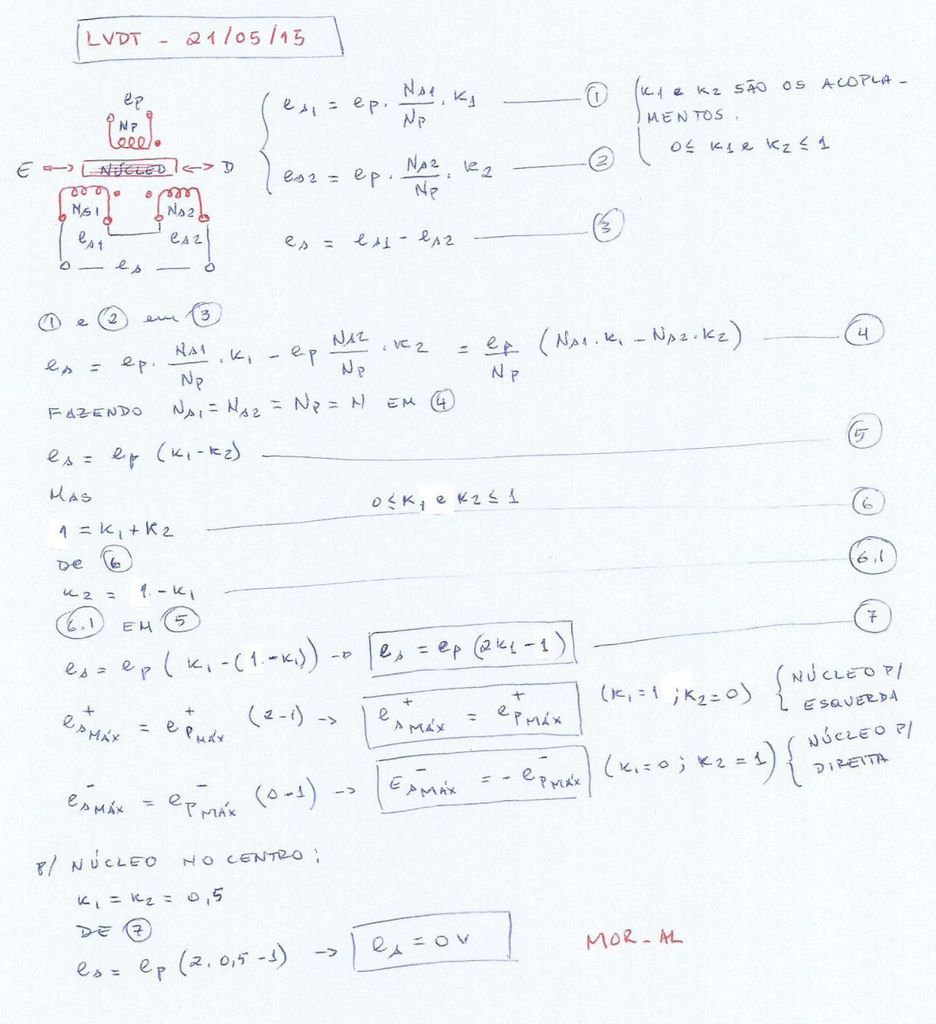 LVDT - 21/05/15
ep
Np
E ↔ NÚCLEO ↔ D
Ns1 Ns2
es1 es2
es
es1 = ep · Ns1/Np · K1 ①
es2 = ep · Ns2/Np · K2 ②
es = es1 - es2 ③
K1 e K2 SÃO OS ACOPLA-
MENTOS.
0 ≤ K1 e K2 ≤ 1
① e ② em ③
es = ep · Ns1/Np · K1 - ep Ns2/Np · K2 = ep/Np (Ns1 · K1 - Ns2 · K2) ④
FAZENDO Ns1 = Ns2 = Np = N EM ④
es = ep (K1-K2) ⑤
MAS 0 ≤ K1 e K2 ≤ 1
1 = K1 + K2 ⑥
DE ⑥
K2 = 1.-K1 6.1
6.1 EM ⑤
es = ep (K1-(1.-K1)) → es = ep (2K1-1) ⑦
es MÁX + = ep MÁX + (2-1) → es MÁX + = ep MÁX + (K1=1 ; K2=0) { NÚCLEO P/
ESQUERDA
es MÁX - = ep MÁX - (0-1) → Es MÁX - = - ep MÁX - (K1=0 ; K2=1) { NÚCLEO P/
DIREITA
P/ NÚCLEO NO CENTRO:
K1 = K2 = 0,5
DE ⑦
es = ep (2. 0,5-1) → es = 0 V
MOR-AL